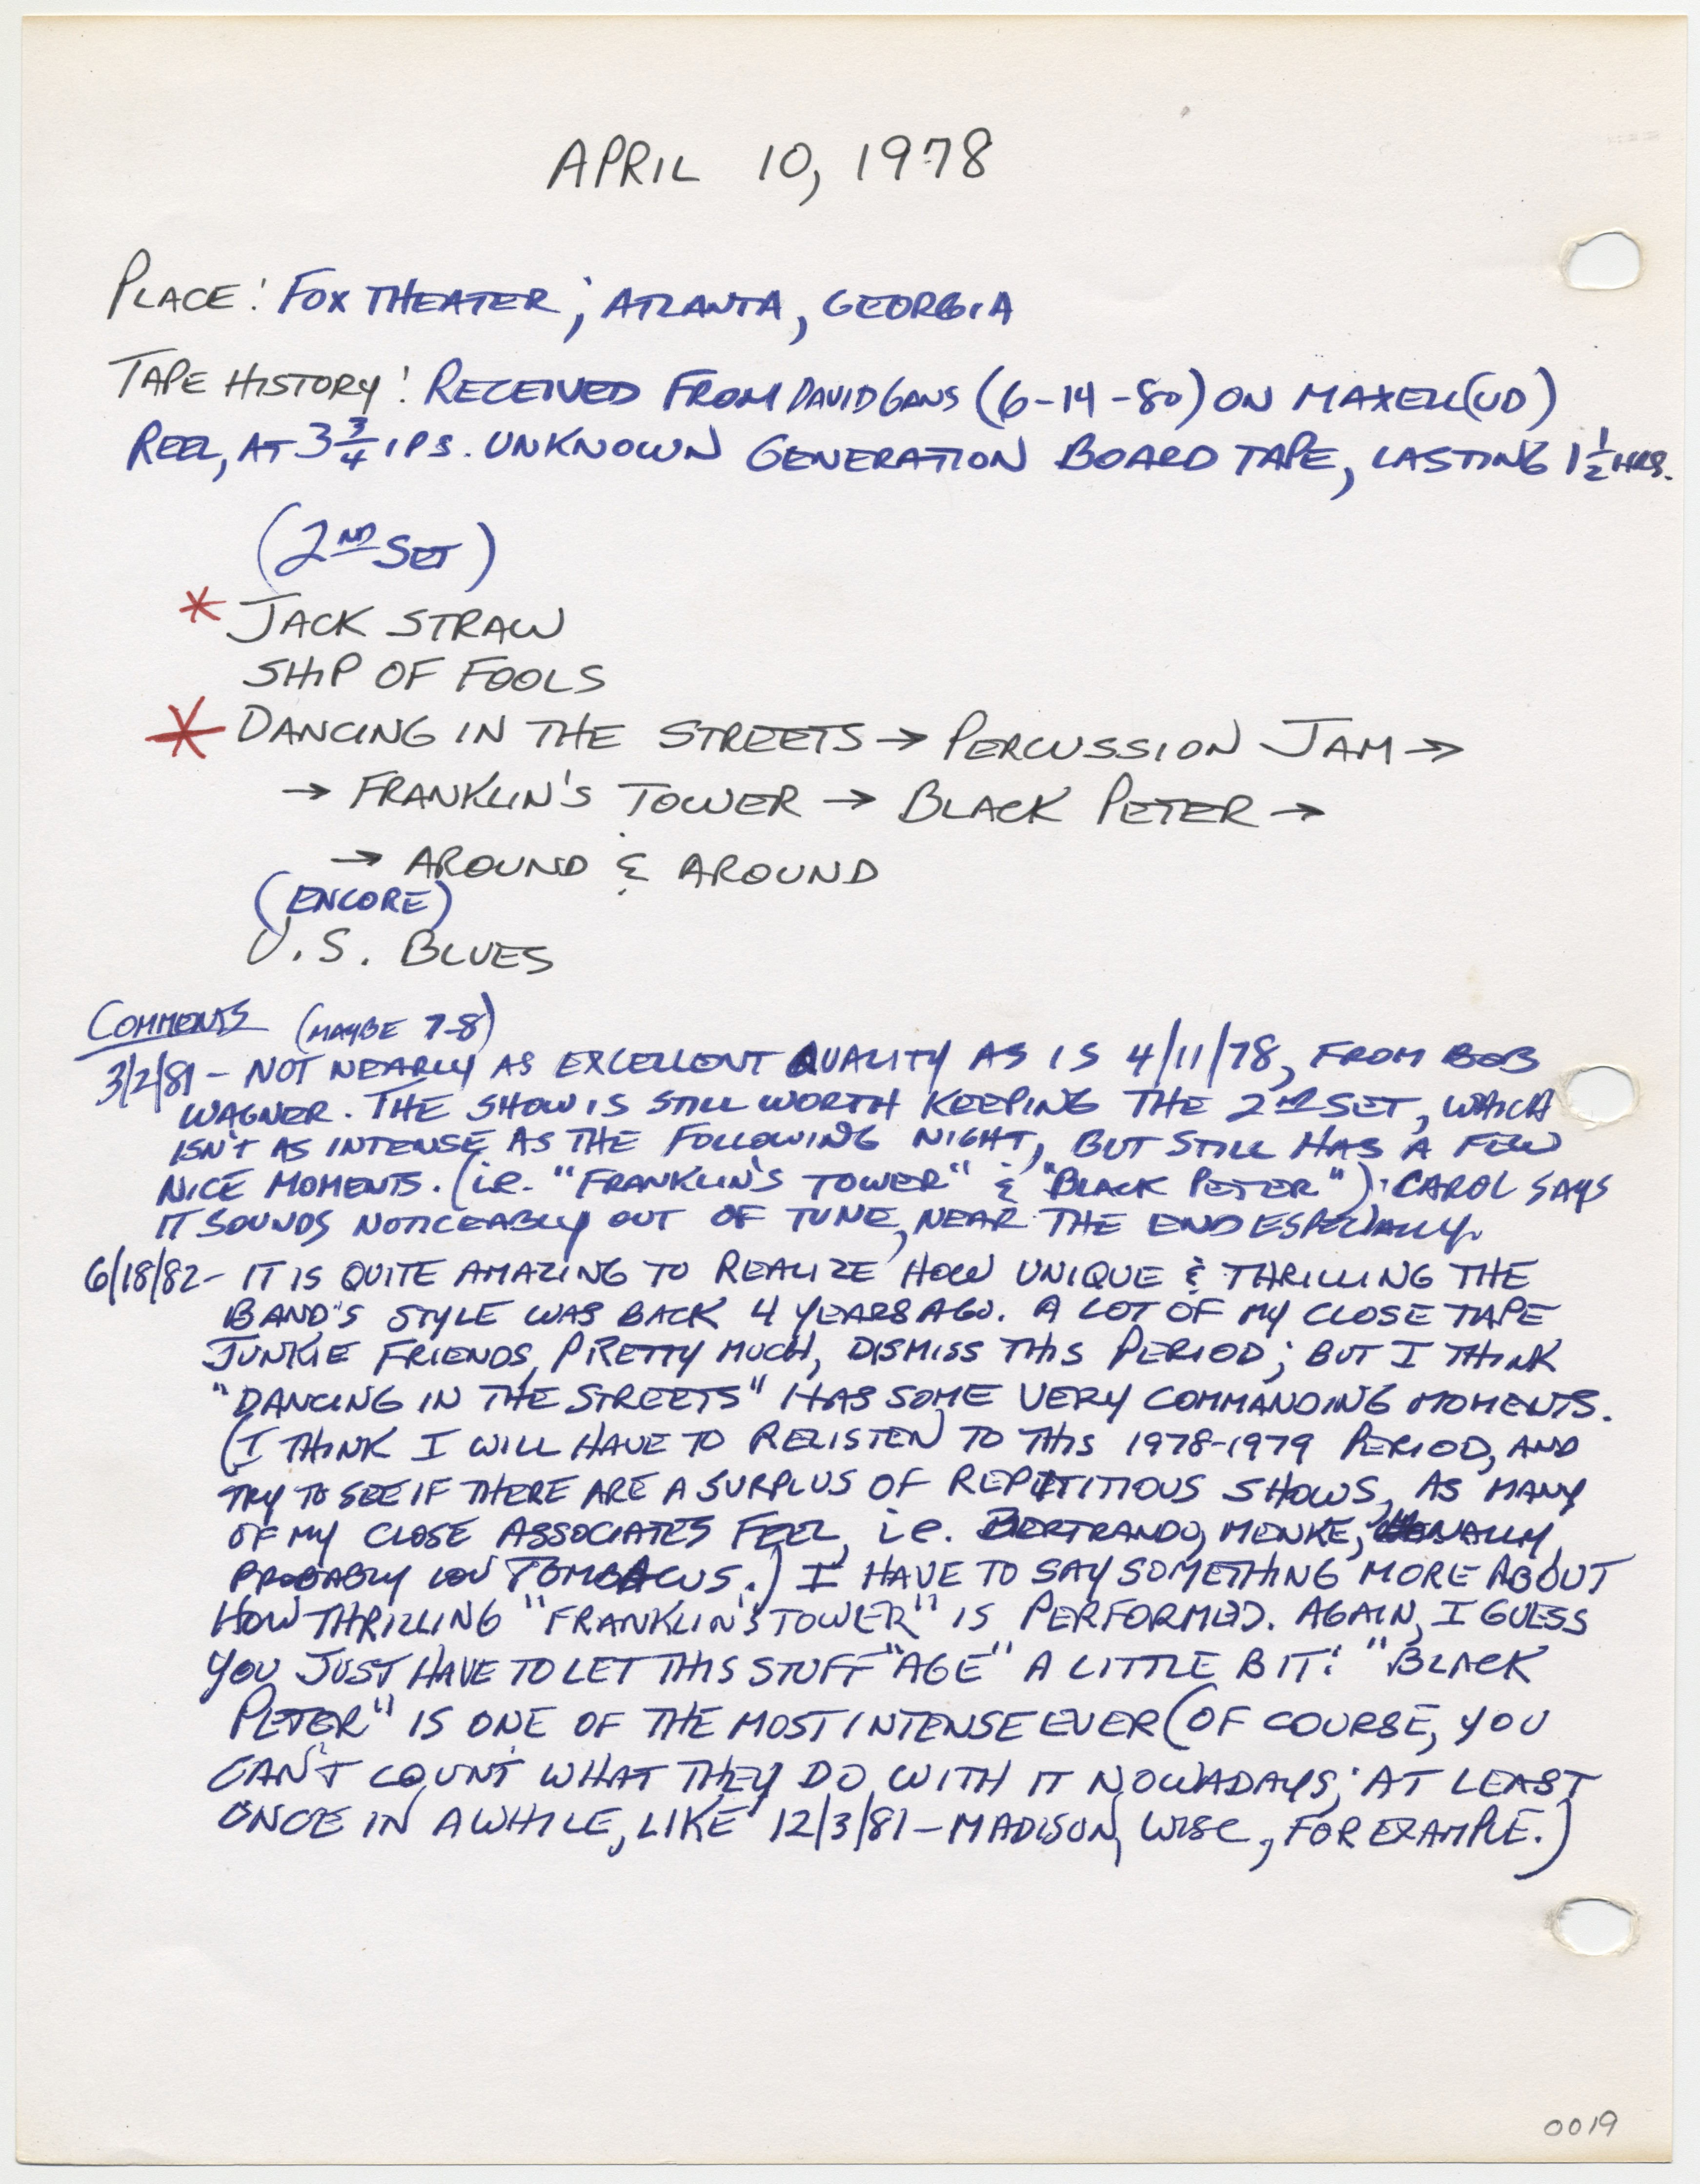 APRIL 10, 1978
PLACE: FOX THEATER; ATLANTA, GEORGIA
TAPE HISTORY: RECEIVED FROM DAVID GANS (6-14-80) ON MAXELL (UD)
REEL, AT 3 3/4 IPS. UNKNOWN GENERATION BOARD TAPE, LASTING 1 1/2 HRS.
(2ND SET)
* JACK STRAW
SHIP OF FOOLS
* DANCING IN THE STREETS → PERCUSSION JAM →
→ FRANKLIN'S TOWER → BLACK PETER →
→ AROUND & AROUND
(ENCORE)
U.S. BLUES
COMMENTS (MAYBE 7-8)
3/2/81 - NOT NEARLY AS EXCELLENT QUALITY AS IS 4/11/78, FROM BOB
WAGNER. THE SHOW IS STILL WORTH KEEPING THE 2ND SET, WHICH
ISN'T AS INTENSE AS THE FOLLOWING NIGHT, BUT STILL HAS A FEW
NICE MOMENTS. (i.e. "FRANKLIN'S TOWER" & "BLACK PETER"). CAROL SAYS
IT SOUNDS NOTICEABLY OUT OF TUNE, NEAR THE END ESPECIALLY.
6/18/82 - IT IS QUITE AMAZING TO REALIZE HOW UNIQUE & THRILLING THE
BAND'S STYLE WAS BACK 4 YEARS AGO. A LOT OF MY CLOSE TAPE
JUNKIE FRIENDS, PRETTY MUCH, DISMISS THIS PERIOD; BUT I THINK
"DANCING IN THE STREETS" HAS SOME VERY COMMANDING MOMENTS.
(I THINK I WILL HAVE TO RELISTEN TO THIS 1978-1979 PERIOD, AND
TRY TO SEE IF THERE ARE A SURPLUS OF REPITITIOUS SHOWS, AS MANY
OF MY CLOSE ASSOCIATES FEEL, i.e. BERTRANDO, MENKE,
PROBABLY LOU TOMBACUS.) I HAVE TO SAY SOMETHING MORE ABOUT
HOW THRILLING "FRANKLIN'S TOWER" IS PERFORMED. AGAIN, I GUESS
YOU JUST HAVE TO LET THIS STUFF "AGE" A LITTLE BIT! "BLACK
PETER" IS ONE OF THE MOST INTENSE EVER (OF COURSE, YOU
CAN'T COUNT WHAT THEY DO WITH IT NOWADAYS; AT LEAST
ONCE IN A WHILE, LIKE 12/3/81 - MADISON, WISC, FOR EXAMPLE.)
0019